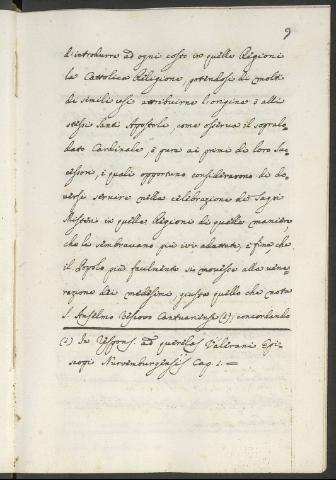 9
d'introdurre ad ogni costo in quelle Regioni
la Cattolica Religione, potendosi di molti
di simili usi attribuirne l'origine ò alli
stessi Santi Apostoli, come osserva il sopralo-
dato Cardinale, ò pure ai primi di loro Suc-
cessori, i quali opportuno considerarono di do-
versi servire nella celebrazione de Sagri
Misterj in quelle Regioni di quelle maniere,
che le sembravano più ivi adattate, e fine, che
il Popolo più facilmente si movesse alla vene-
razione dei medesimi, giusta quello che nota
S. Anselmo Vescovo Cantuariense (1), concordando
(1) In Respons. ad querelas Valerani Epi-
scopi Nuremburgensis Cap. 1. =